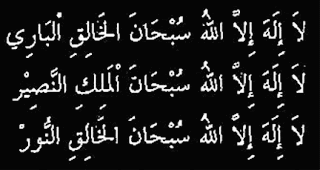 لَا إِلَهَ إِلاَّ اللهُ سُبْحَانَ الخَالِقِ ٱلْبَارِي
لَا إِلَهَ إِلاَّ اللهُ سُبْحَانَ ٱلْمَلِكِ النَّصِيْرِ
لَا إِلَهَ إِلاَّ اللهُ سُبْحَانَ الْخَالِقِ النُّورْ